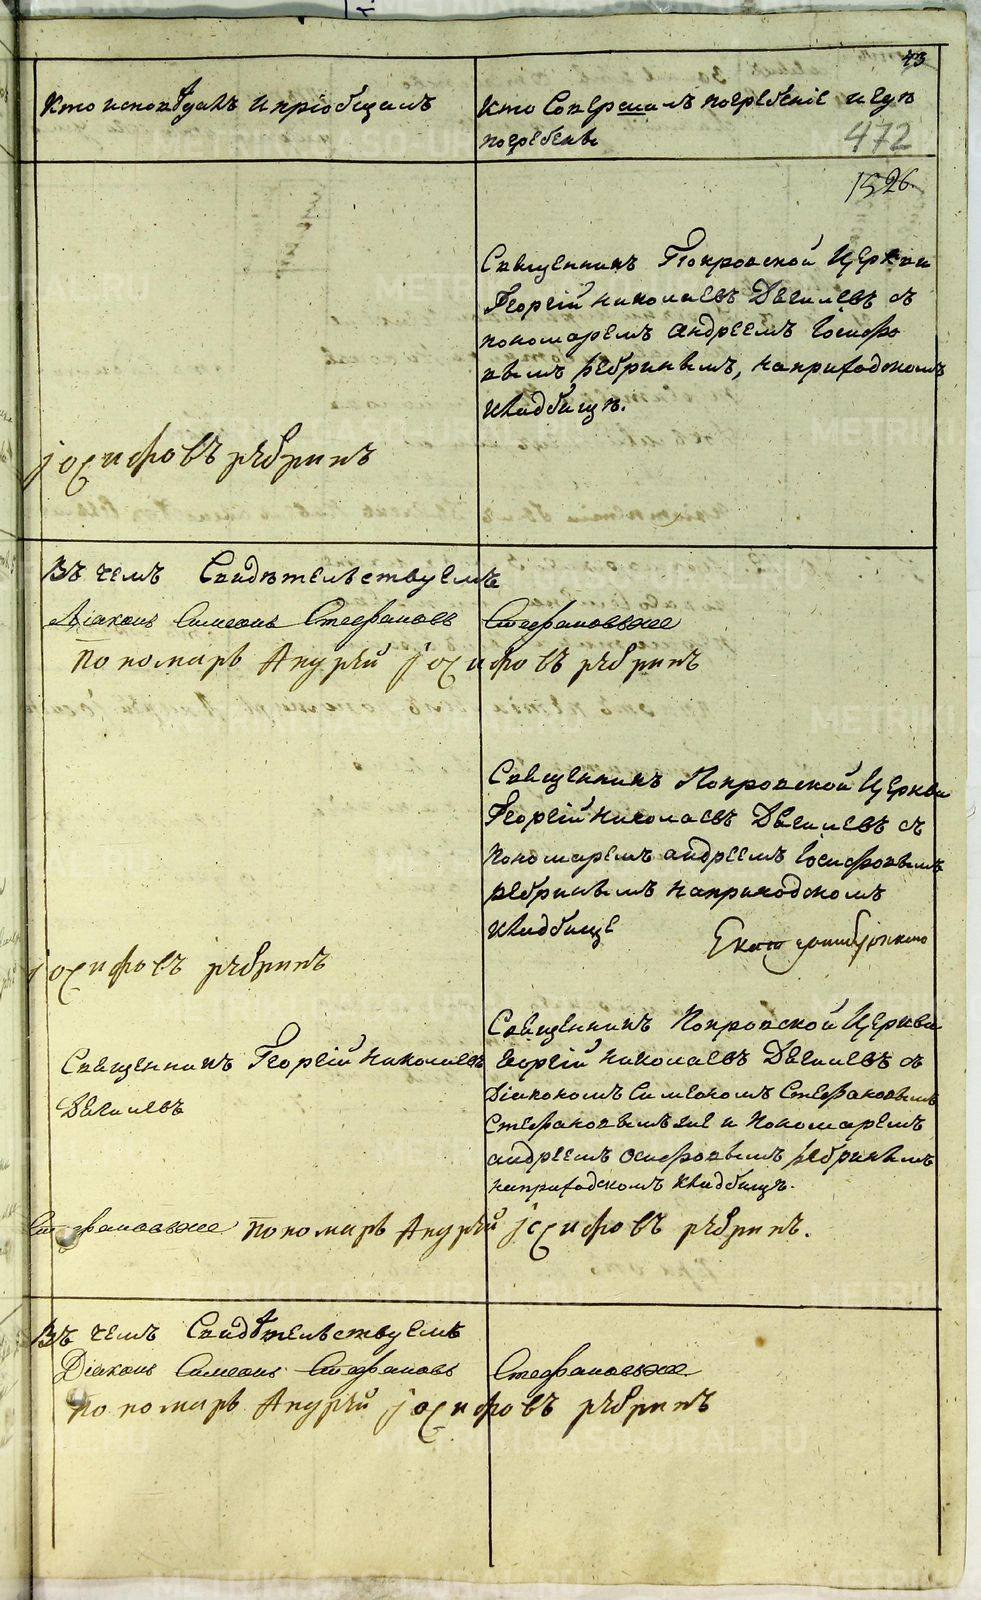 43
Кто исповѣдалъ и пріобщалъ
Кто Совершалъ погребеніе и гдѣ
погребенъ
472
1526.
Священникъ Покровской Церкви
Георгій Николаевъ Дягилевъ съ
пономаремъ андреемъ Іосифо
вымъ рѣбринымъ, наприходскомъ
кладбищѣ.
іосифовъ рѣбринъ
Въ чемъ Свидѣтельствуемъ
Діаконъ Симеонъ Стефановъ Стефановыхъ
пономарь Андрѣй іосифовъ рѣбринъ
Священникъ Покровской Церкви
Георгій Николаевъ Дягилевъ съ
пономаремъ андреемъ Іосифовымъ
рѣбринымъ наприходскомъ
кладбище
іосифовъ рѣбринъ
Священникъ Георгій Николаевъ
Дягилевъ
Священникъ Покровской Церкви
Георгій Николаевъ Дягилевъ съ
Діакономъ Симеономъ Стефановымъ
и Пономаремъ
андреемъ осифовымъ рѣбринымъ
наприходскомъ кладбищѣ.
пономарь Андрѣй іосифовъ рѣбринъ.
Въ чемъ Свидѣтельствуемъ
Діаконъ Симеонъ Стефановъ
пономарь Андрѣй іосифовъ рѣбринъ
METRIKI.GASO-URAL.RU